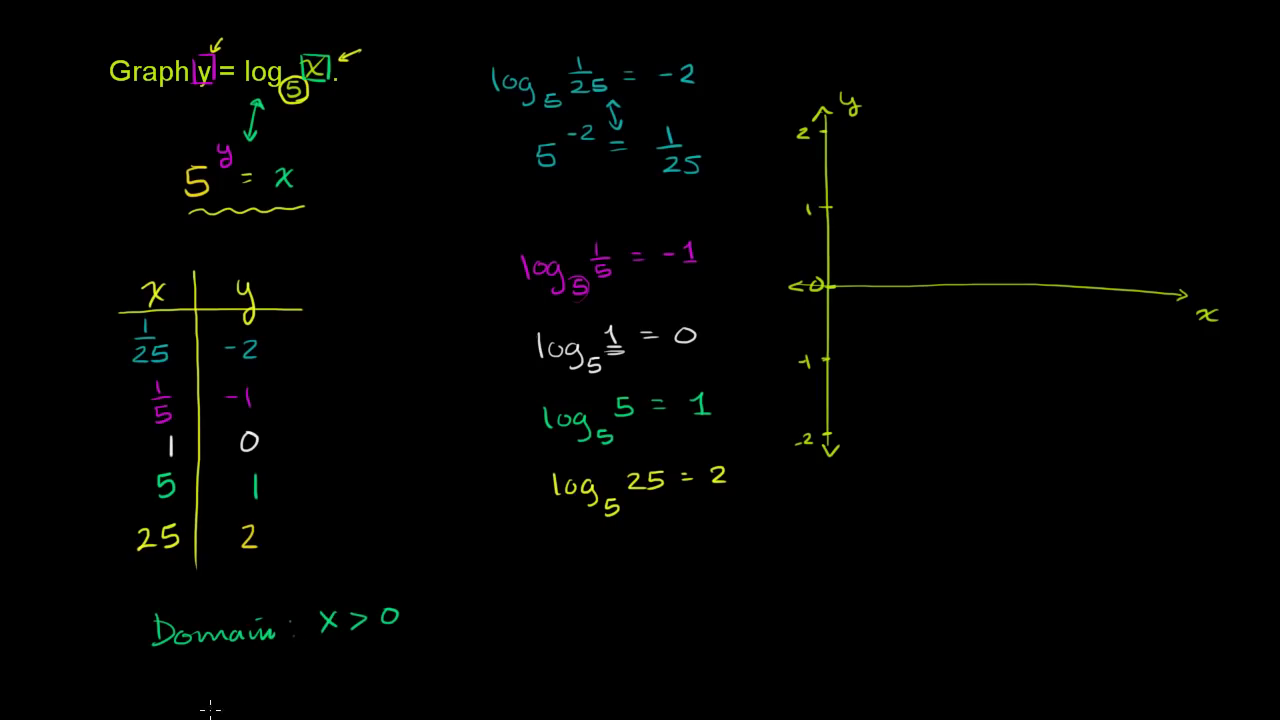 Graph y = log₅ x.
5^y = x
x y
1/25 -2
1/5 -1
1 0
5 1
25 2
Domain: x > 0
log₅ 1/25 = -2
5^-2 = 1/25
log₅ 1/5 = -1
log₅ 1 = 0
log₅ 5 = 1
log₅ 25 = 2
y
2
1
0
x
-1
-2